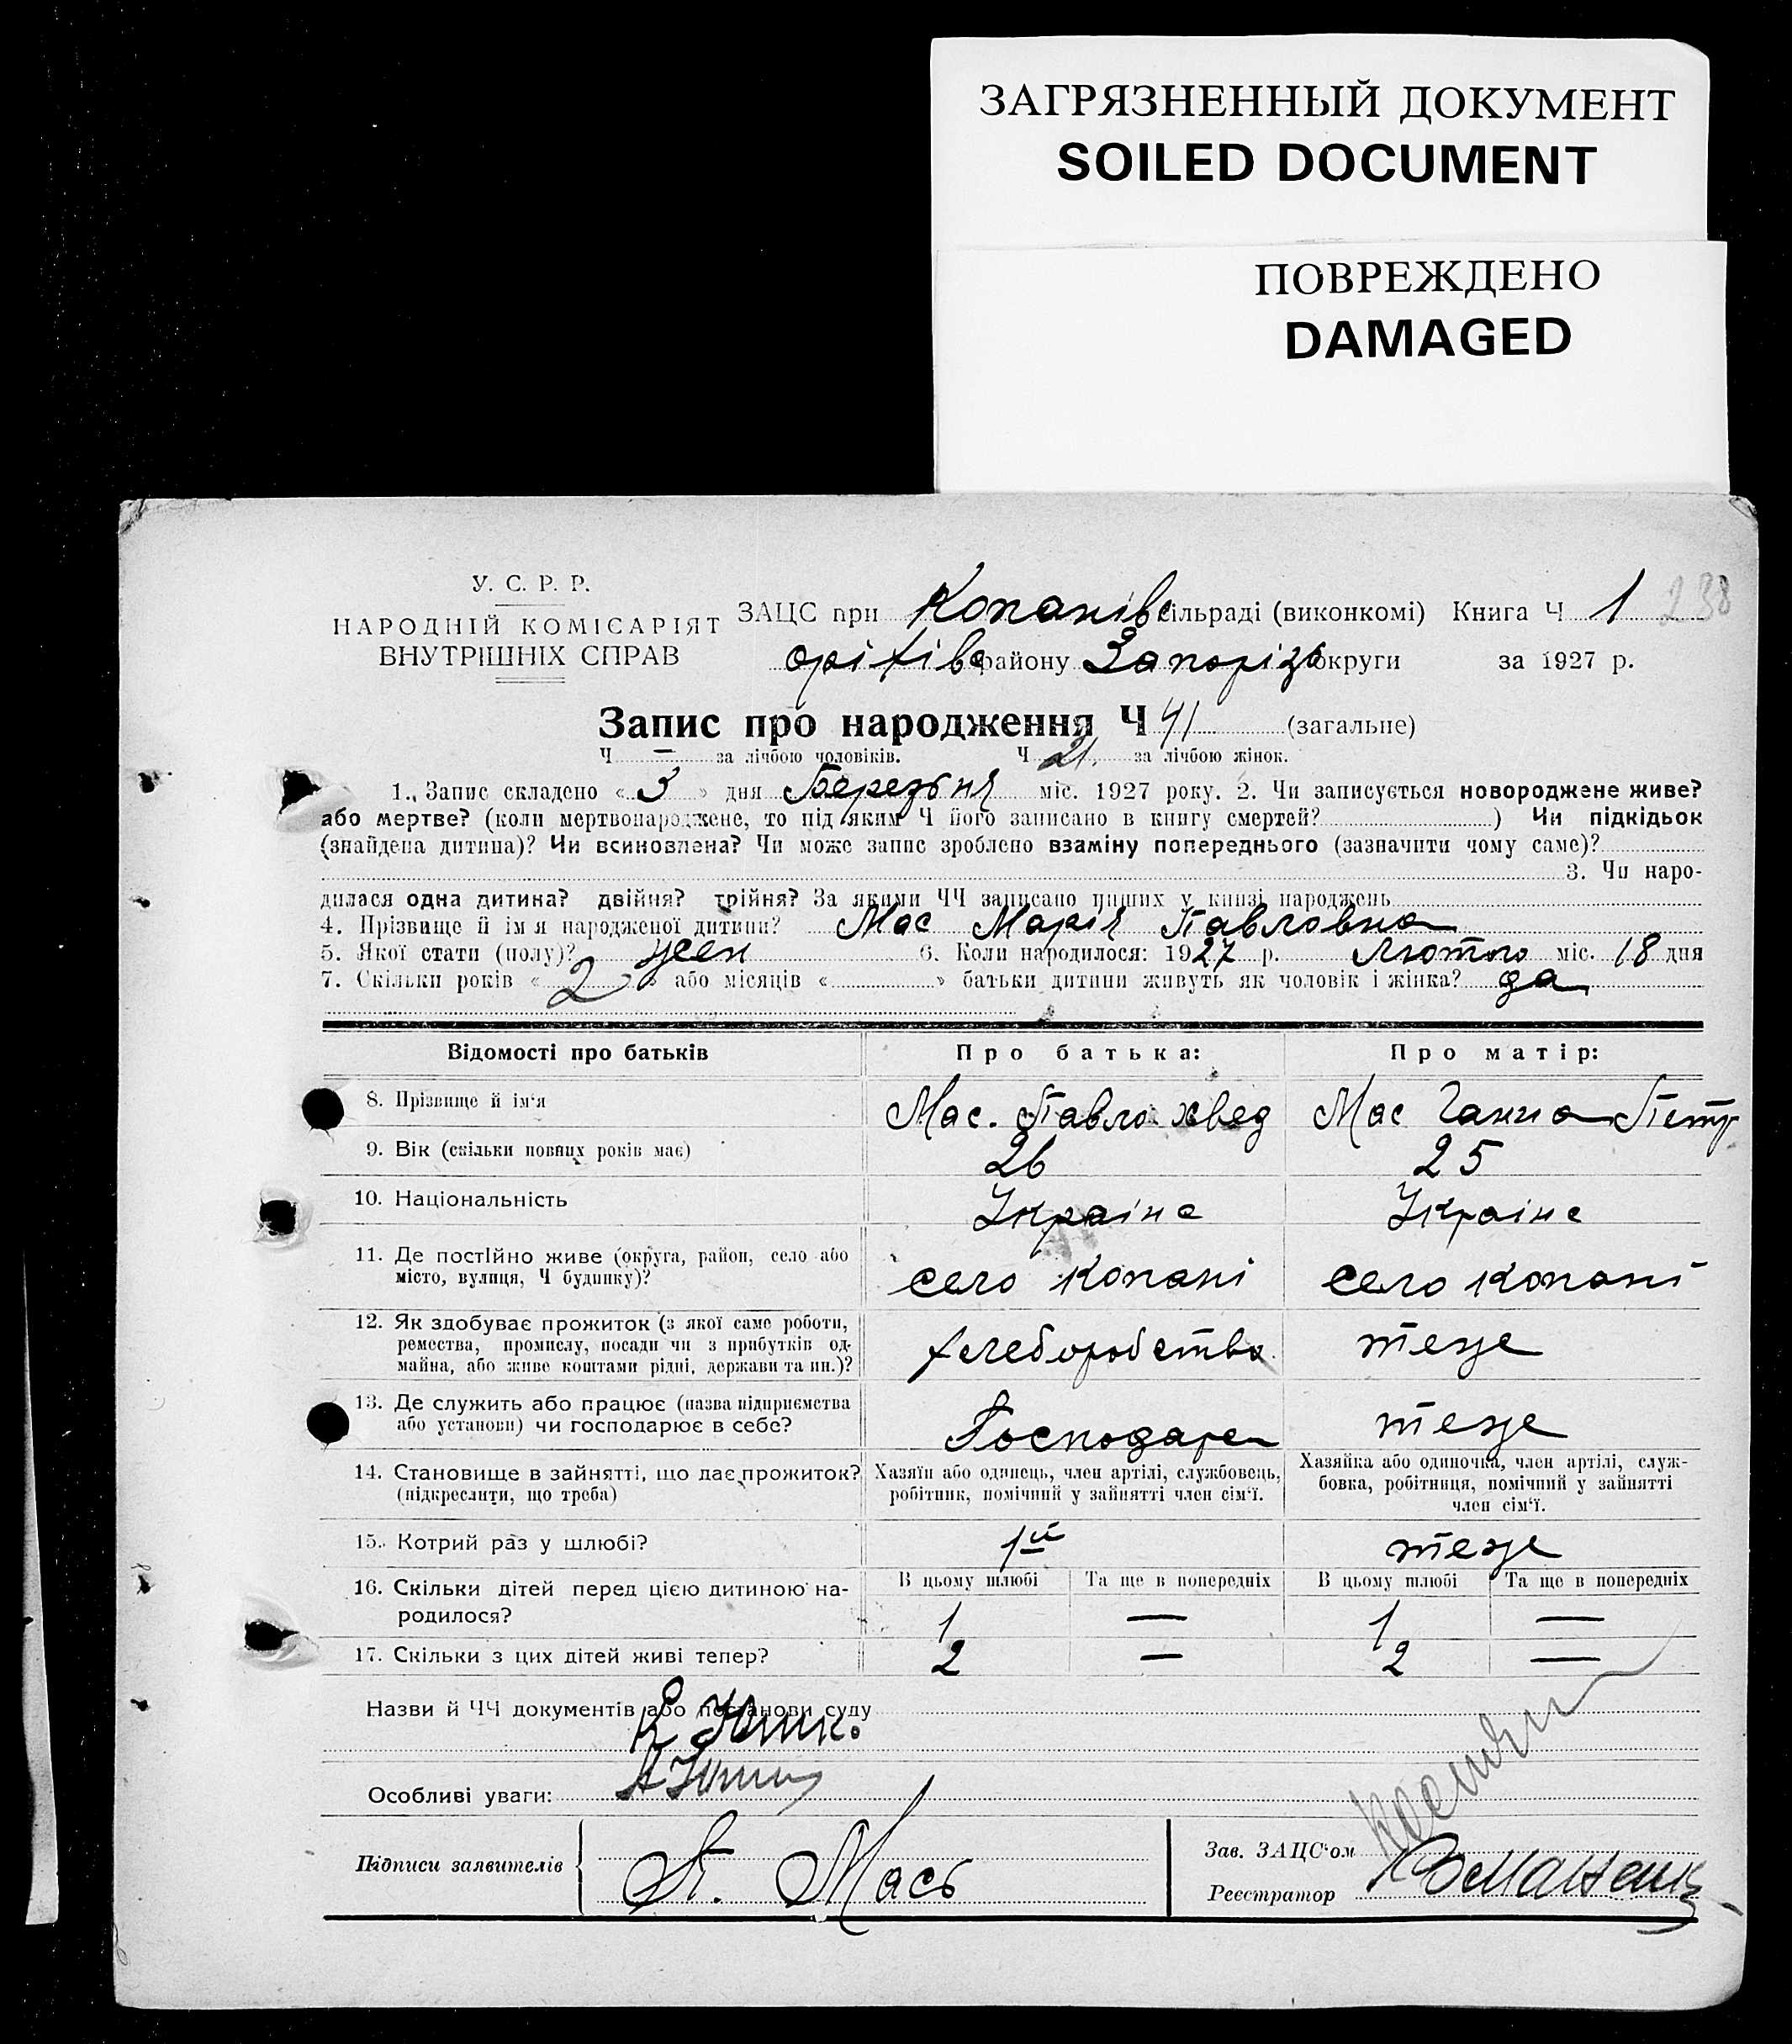 ЗАГРЯЗНЕННЫЙ ДОКУМЕНТ
SOILED DOCUMENT
ПОВРЕЖДЕНО
DAMAGED
У. С. Р. Р.
НАРОДНІЙ КОМІСАРІЯТ
ВНУТРІШНІХ СПРАВ
ЗАЦС при Копанівс сільраді (виконкомі) Книга Ч 1 238
Оріхівс району Запоріз округи за 1927 р.
Запис про народження Ч 41 (загальне)
Ч — за лічбою чоловіків. Ч 21. за лічбою жінок.
1. Запис складено « 3 » дня Березня міс. 1927 року. 2. Чи записується новороджене живе?
або мертве? (коли мертвонароджене, то під яким Ч його записано в книгу смертей? ) Чи підкідьок
(знайдена дитина)? Чи всиновлена? Чи може запис зроблено взаміну попереднього (зазначити чому саме)?
3. Чи наро-
дилася одна дитина? двійня? трійня? За якими ЧЧ записано инших у книзі народжень
4. Прізвище й ім'я народженої дитини? Мас Марія Павловна
5. Якої стати (полу)? жен 6. Коли народилося: 1927 р. Лютого міс. 18 дня
7. Скільки років « 2 » або місяців « » батьки дитини живуть як чоловік і жінка? да
Відомості про батьків Про батька: Про матір:
8. Прізвище й ім'я Мас. Павло хвед Мас Ганна Петр
9. Вік (скільки повних років має) 26 25
10. Національність Україне Україне
11. Де постійно живе (округа, район, село або
місто, вулиця, Ч будинку)? село Копані село Копані
12. Як здобуває прожиток (з якої саме роботи,
ремества, промислу, посади чи з прибутків од-
майна, або живе коштами рідні, держави та ин.)? хлеборобство теже
13. Де служить або працює (назва підприємства
або установи) чи господарює в себе? Господарен теже
14. Становище в зайнятті, що дає прожиток?
(підкреслити, що треба)
Хазяїн або одинець, член артілі, службовець,
робітник, помічний у зайнятті член сім'ї.
Хазяйка або одиночка, член артілі, служ-
бовка, робітниця, помічний у зайнятті
член сім'ї.
15. Котрий раз у шлюбі? 1й теже
16. Скільки дітей перед цією дитиною на-
родилося?
В цьому шлюбі Та ще в попередніх В цьому шлюбі Та ще в попередніх
1 — 1 —
17. Скільки з цих дітей живі тепер? 2 — 2 —
Назви й ЧЧ документів або постанови суду
Особливі уваги:
Підписи заявителів П. Мась
Зав. ЗАЦС'ом
Реєстратор